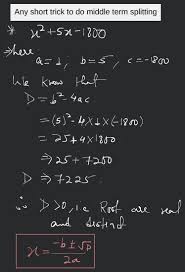 Any short trick to do middle term splitting
* x² + 5x - 1800
⇒ here
a = 1, b = 5, c = -1800
We know that
D = b² - 4ac
= (5)² - 4 × 1 × (-1800)
= 25 + 4 × 1800
⇒ 25 + 7200
D ⇒ 7225.
∴ D > 0, i.e Root are real
and distinct
x = -b ± √D / 2a